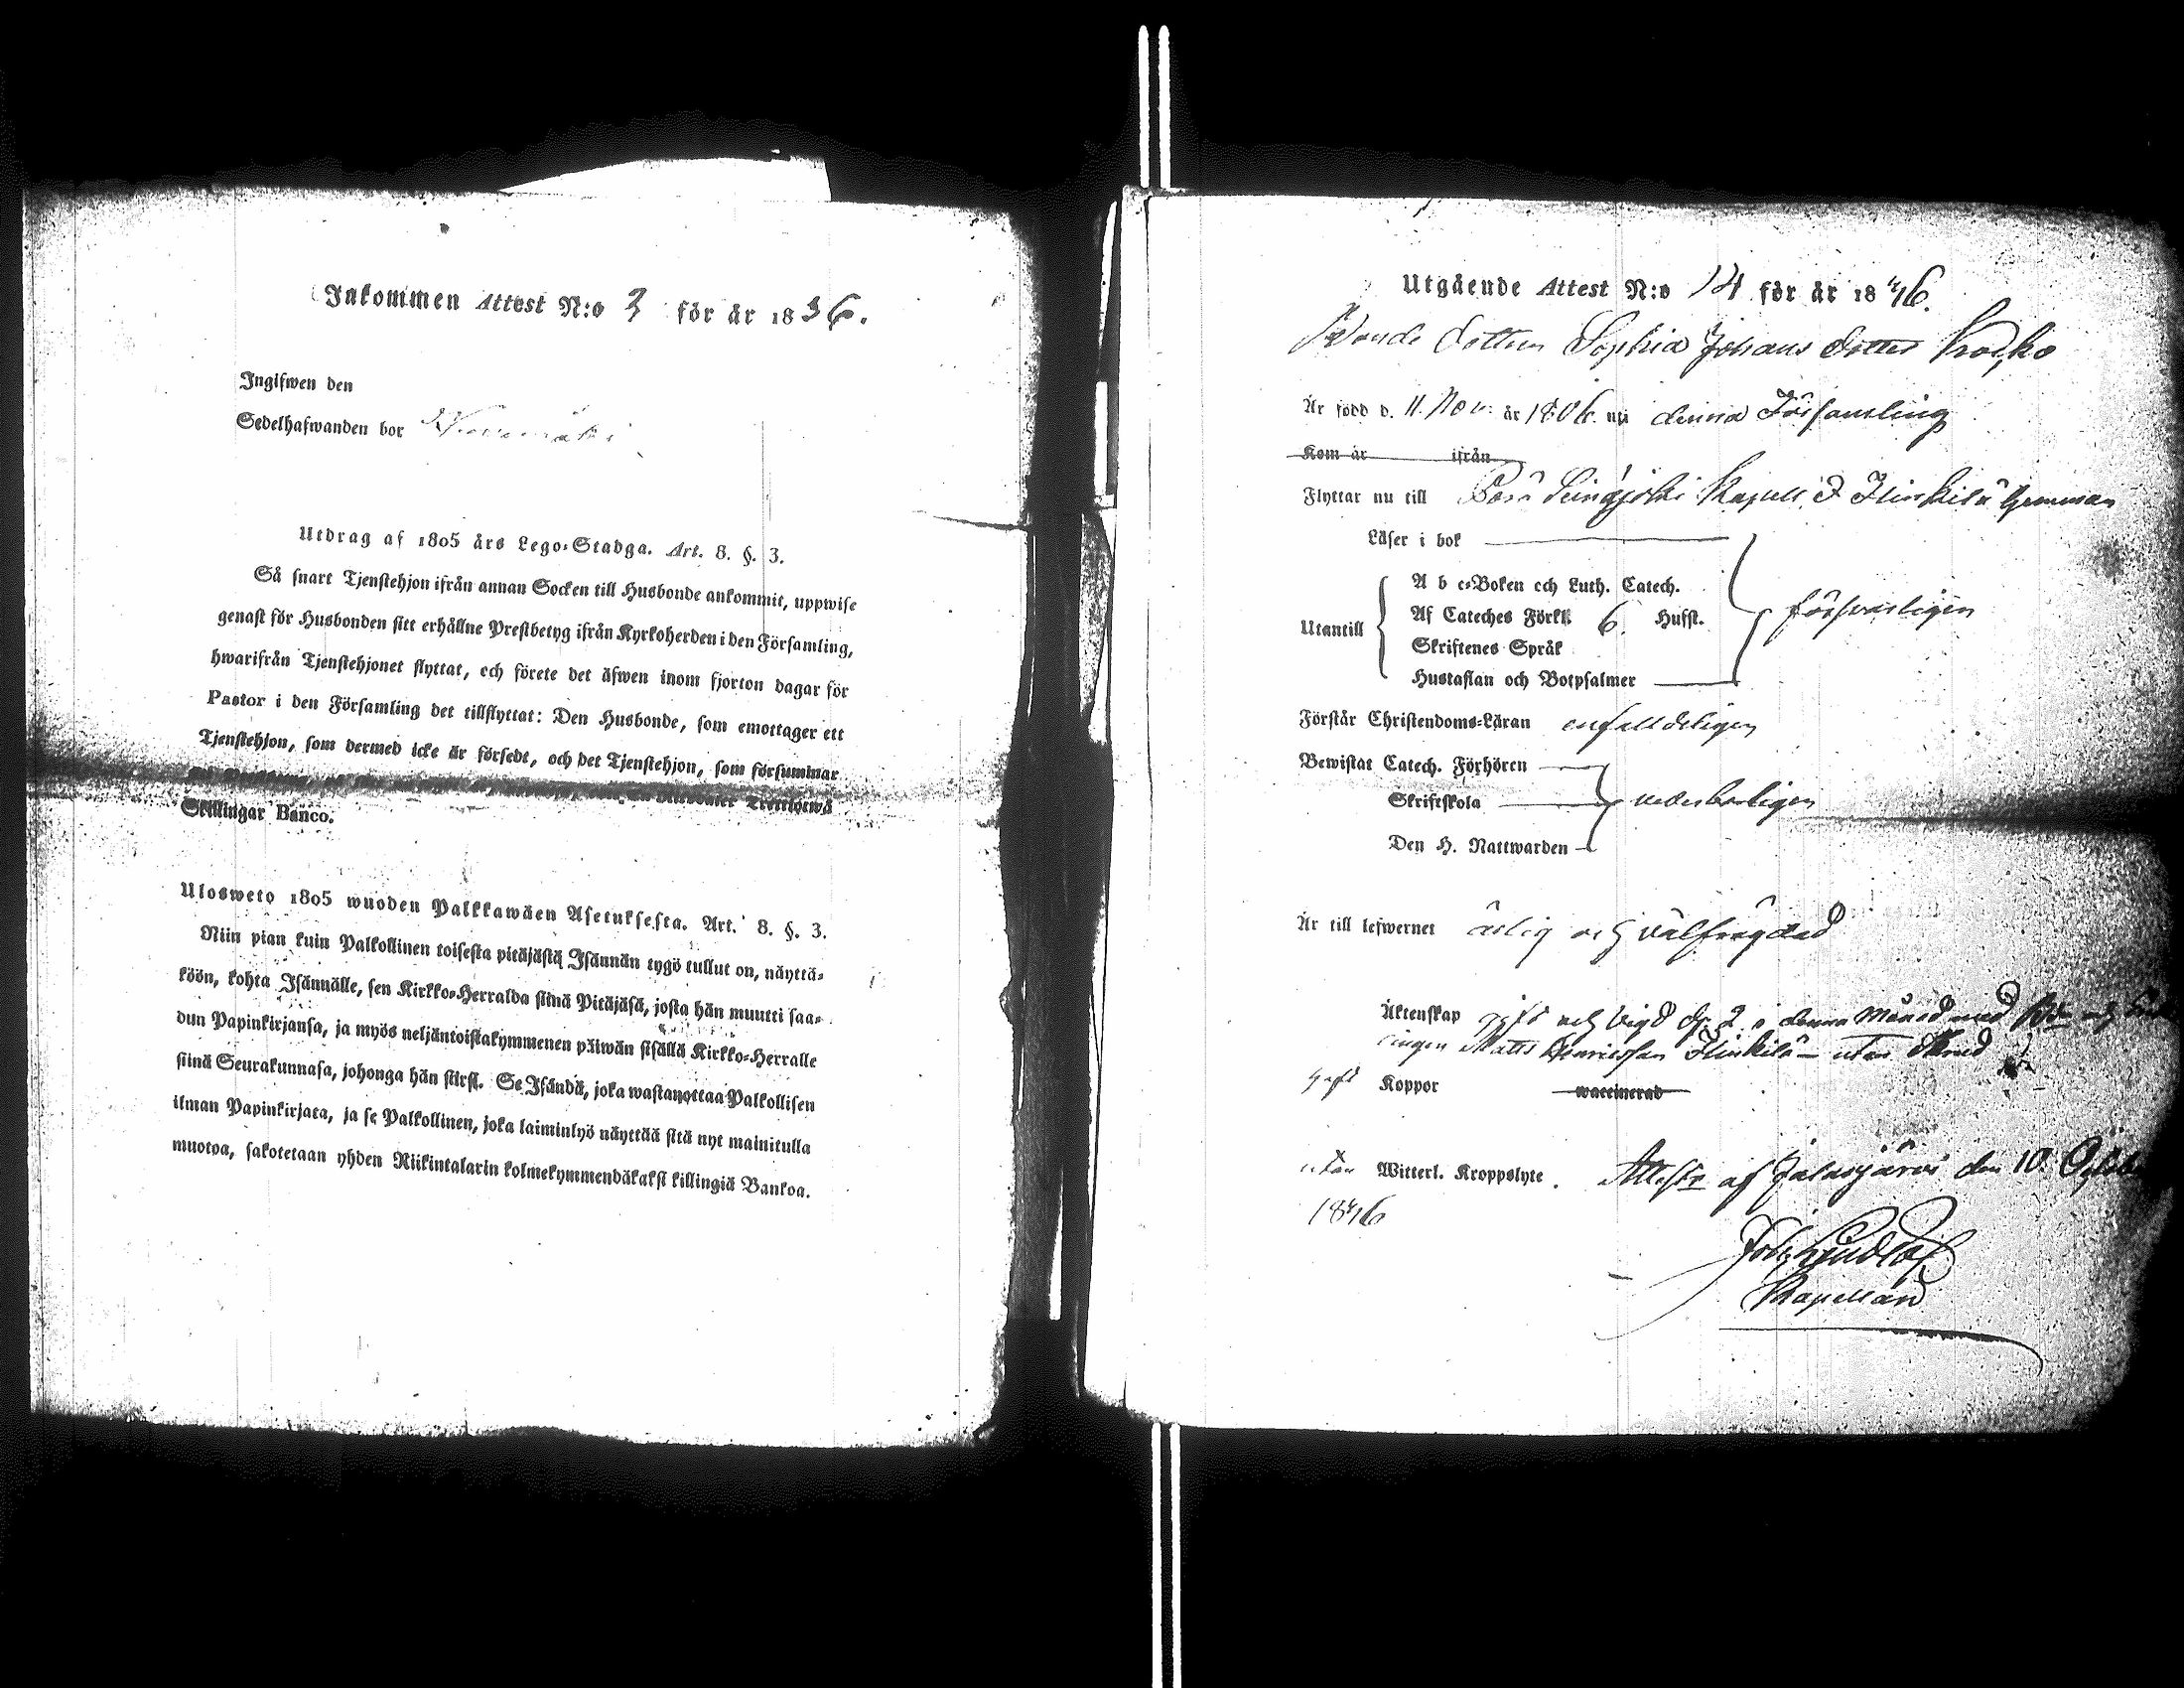 Inkommen Attest N:o 3 för år 1836.
Ingifwen den
Sedelhafwanden bor
Utdrag af 1805 års Lego-Stadga. Art. 8. §. 3.
Så snart Tjenstehjon ifrån annan Socken till Husbonde ankommit, uppwise
genast för Husbonden sitt erhållne Prestbetyg ifrån Kyrkoherden i den Församling,
hwarifrån Tjenstehjonet flyttat, och förete det äfwen inom fjorton dagar för
Pastor i den Församling det tillflyttat: Den Husbonde, som emottager ett
Tjenstehjon, som dermed icke är försedt, och det Tjenstehjon, som försummar
Riksdaler Trettiotwå
Skillingar Banco.
Ulosweto 1805 wuoden Palkkawäen Asetuksesta. Art. 8. §. 3.
Niin pian kuin Palkollinen toisesta pitäjästä Isännän tygö tullut on, näyttä-
köön, kohta Isännälle, sen Kirkko-Herralda siinä Pitäjäsä, josta hän muutti saa-
dun Papinkirjansa, ja myös neljäntoistakymmenen päiwän sisällä Kirkko-Herralle
siinä Seurakunnasa, johonga hän siirsi. Se Isändä, joka wastanottaa Palkollisen
ilman Papinkirjata, ja se Palkollinen, joka laiminlyö näyttää sitä nyt mainitulla
muotoa, sakotetaan yhden Riikintalarin kolmekymmendäkaksi killingiä Bankoa.
Utgående Attest N:o 14 för år 1846.
Bonde dottren Sophia Johans dotter Koskо
Är född d. 11. Nov. år 1806. uti denna Församling
Kom år ifrån
Flyttar nu till Peräseinäjoki Kapell. &
Läser i bok
A b c-Boken och Luth. Catech.
Utantill Af Cateches Förkl. 6. Hufst. försvarligen
Skriftenes Språk
Hustaflan och Botpsalmer
Förstår Christendoms-Läran enfalldeligen
Bewistat Catech. Förhören
Skriftskola vederbörligen
Den H. Nattwarden
Är till lefwernet ärlig och välfrägdad
Äktenskap gift och vigd d. 2 i denna Månad med
Matts Henricsson utan
haft Koppor waccinerad
utan Witterl. Kroppslyte. Attestr. af Jalasjärvi den 10 October
1846
Joh. Lundtöf
Kapellan